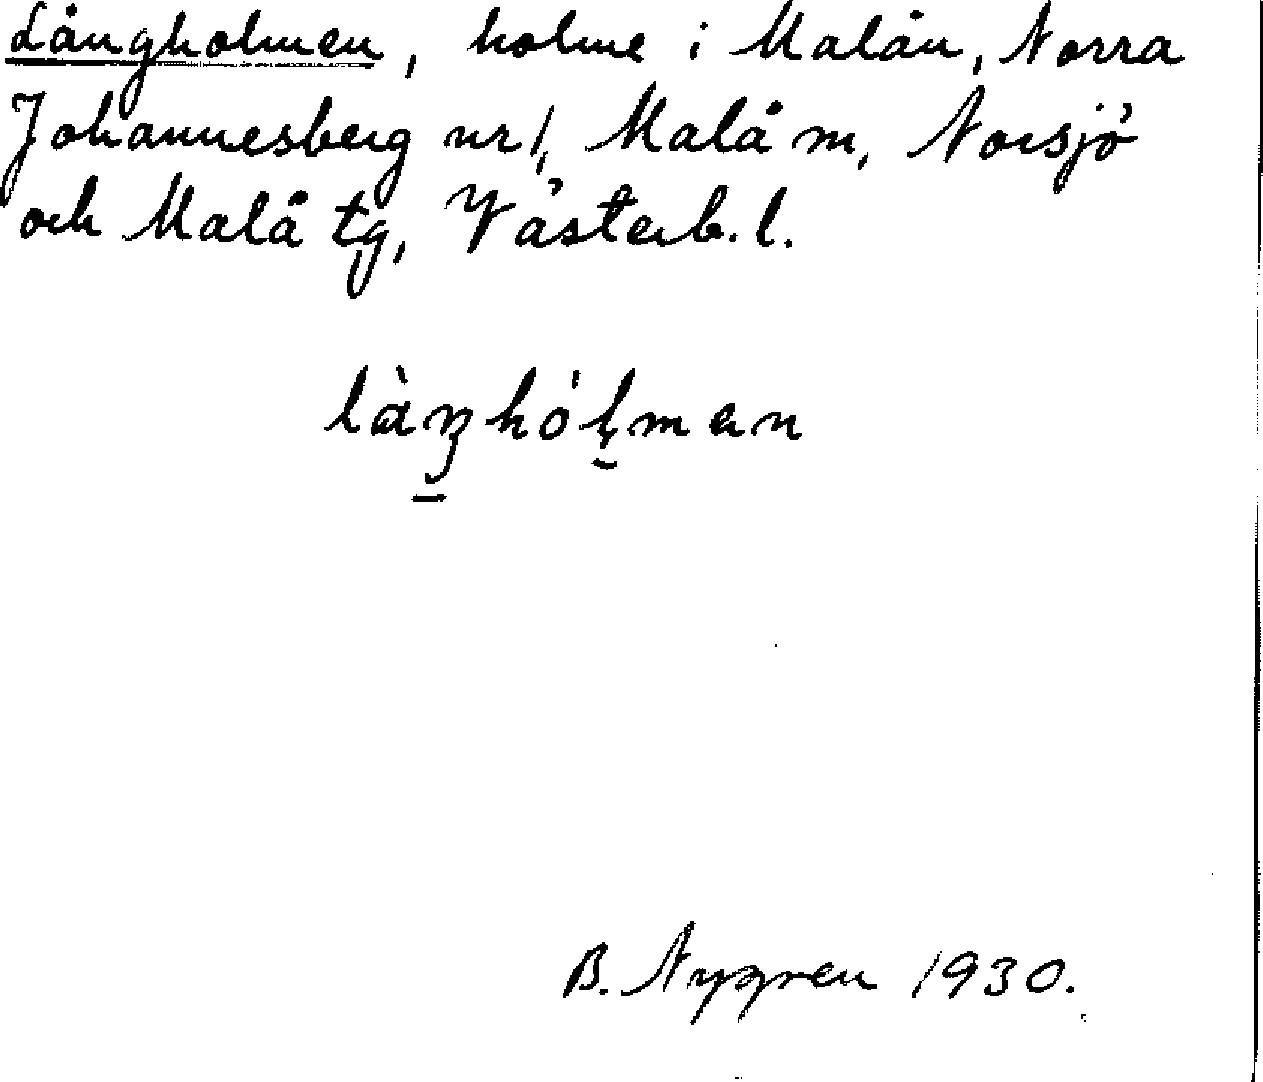 Långholmen, holme i Malån, Norra
Johannesberg nr 1, Malå m, Norsjö
och Malå tg, Västerb. l.
làŋhóļmen
B. Nygren 1930.